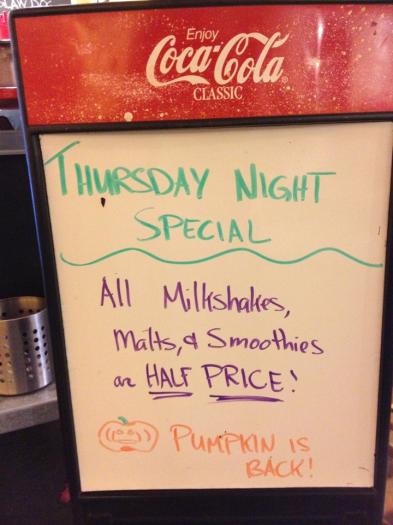 LAW DOG
Enjoy
Coca-Cola
CLASSIC
THURSDAY NIGHT
SPECIAL
All Milkshakes,
Malts, & Smoothies
are HALF PRICE!
PUMPKIN IS
BACK!